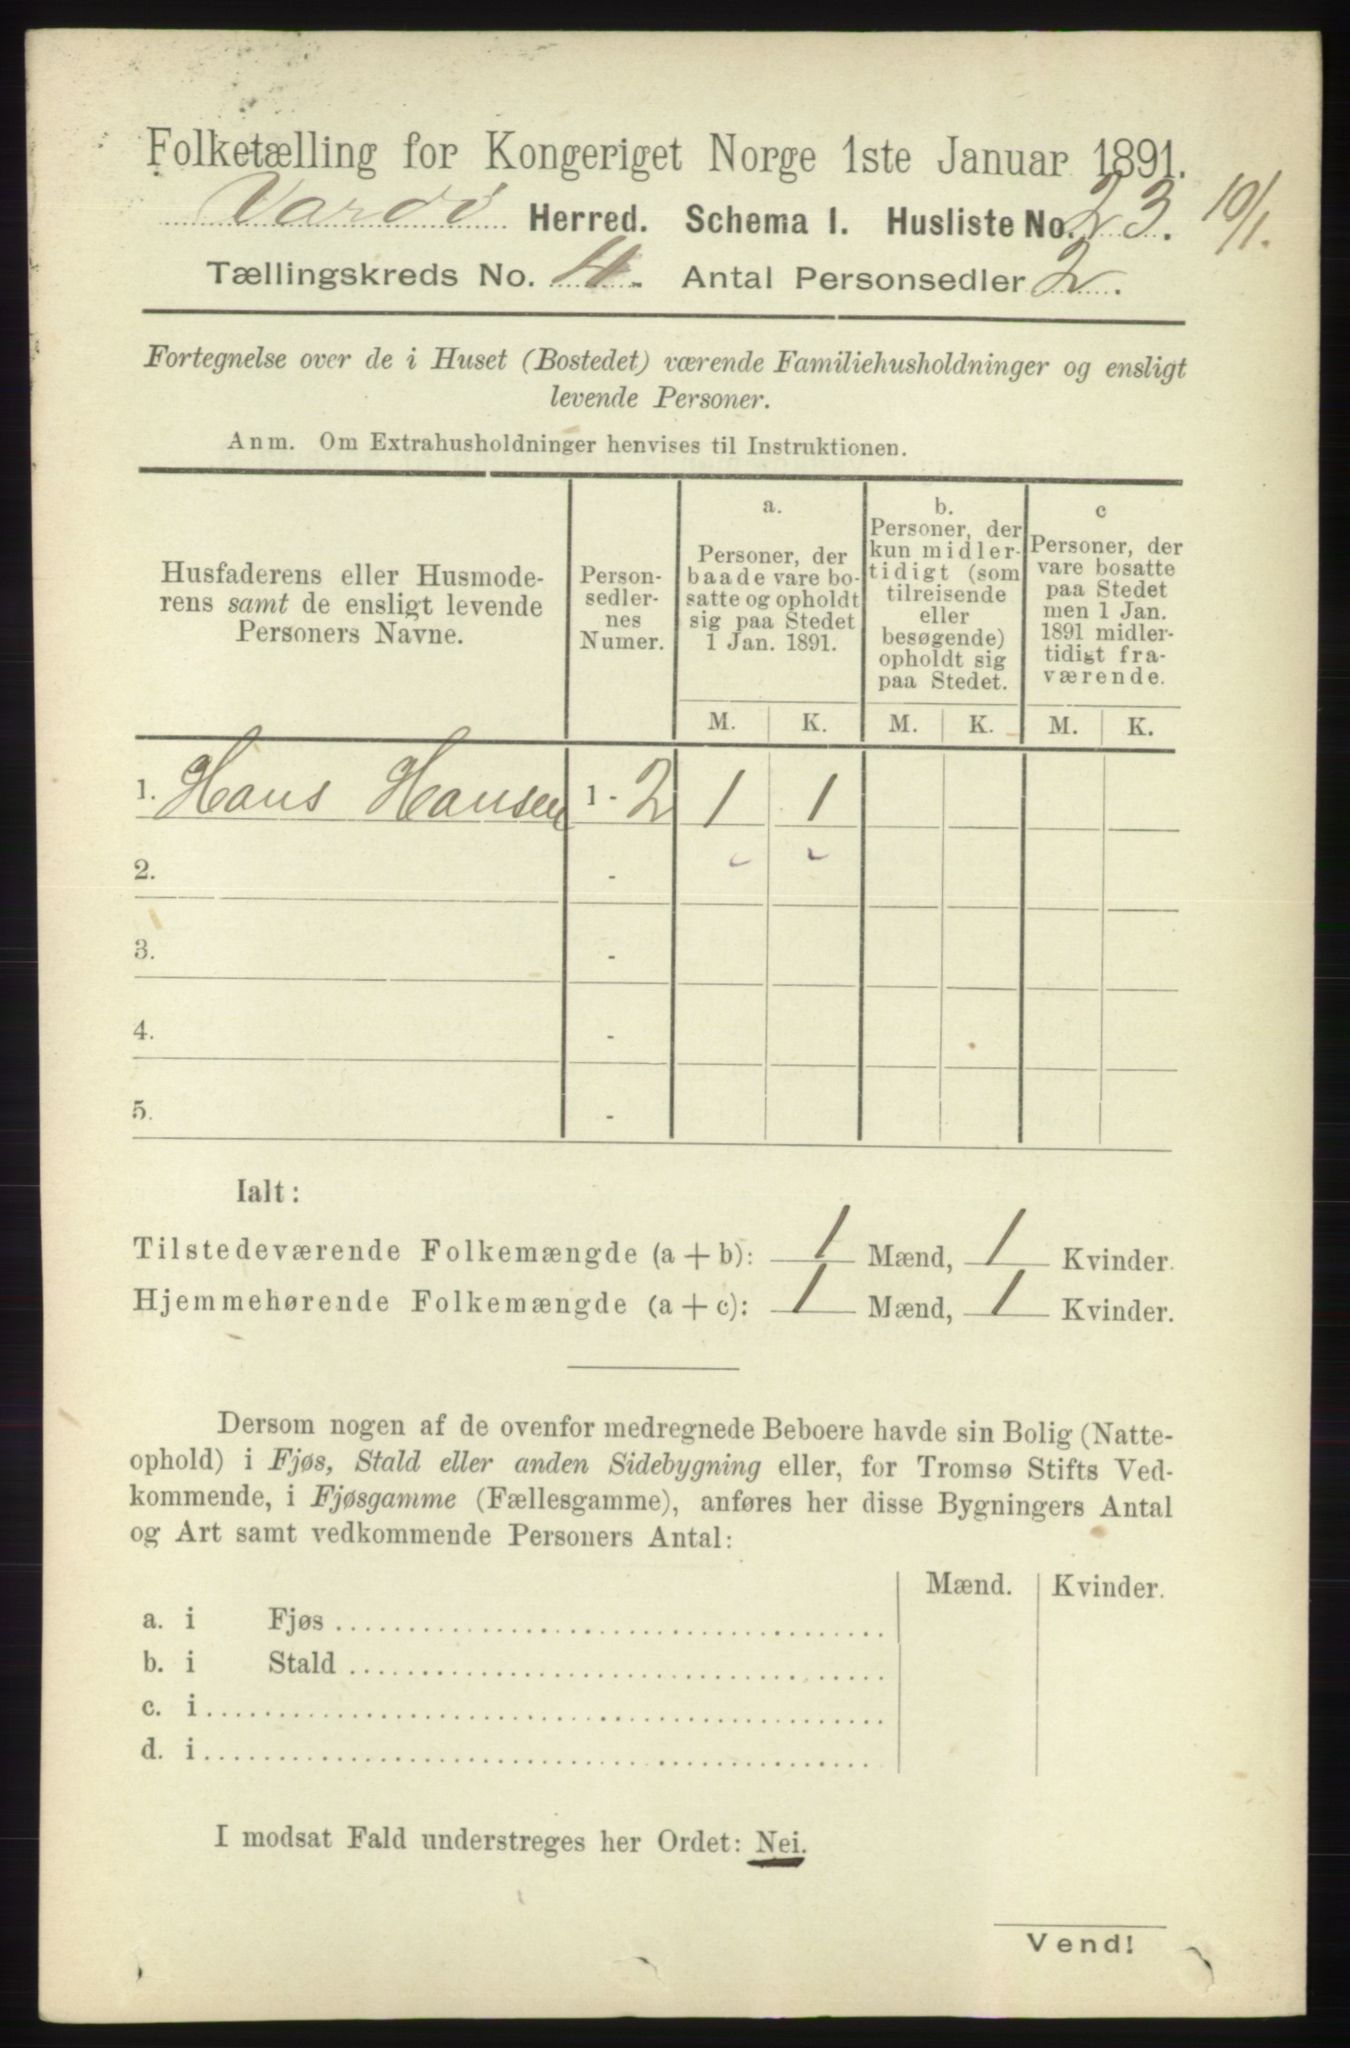 Folketælling for Kongeriget Norge 1ste Januar 1891.
Vardø Herred. Schema I. Husliste No. 23. 10/1.
Tællingskreds No. 4. Antal Personsedler 2.
Fortegnelse over de i Huset (Bostedet) værende Familiehusholdninger og ensligt
levende Personer.
Anm. Om Extrahusholdninger henvises til Instruktionen.
Husfaderens eller Husmode-
rens samt de ensligt levende
Personers Navne.
Person-
sedler-
nes
Numer.
a.
Personer, der
baade vare bo-
satte og opholdt
sig paa Stedet
1 Jan. 1891.
b.
Personer, der
kun midler-
tidigt (som
tilreisende
eller
besøgende)
opholdt sig
paa Stedet.
c
Personer, der
vare bosatte
paa Stedet
men 1 Jan.
1891 midler-
tidigt fra-
værende.
M. K. M. K. M. K.
1. Hans Hansen 1 - 2 1 1
2. -
3. -
4. -
5. -
Ialt:
Tilstedeværende Folkemængde (a + b): 1 Mænd, 1 Kvinder.
Hjemmehørende Folkemængde (a + c): 1 Mænd, 1 Kvinder.
Dersom nogen af de ovenfor medregnede Beboere havde sin Bolig (Natte-
ophold) i Fjøs, Stald eller anden Sidebygning eller, for Tromsø Stifts Ved-
kommende, i Fjøsgamme (Fællesgamme), anføres her disse Bygningers Antal
og Art samt vedkommende Personers Antal:
Mænd. Kvinder.
a. i Fjøs
b. i Stald
c. i
d. i
I modsat Fald understreges her Ordet: Nei.
Vend!